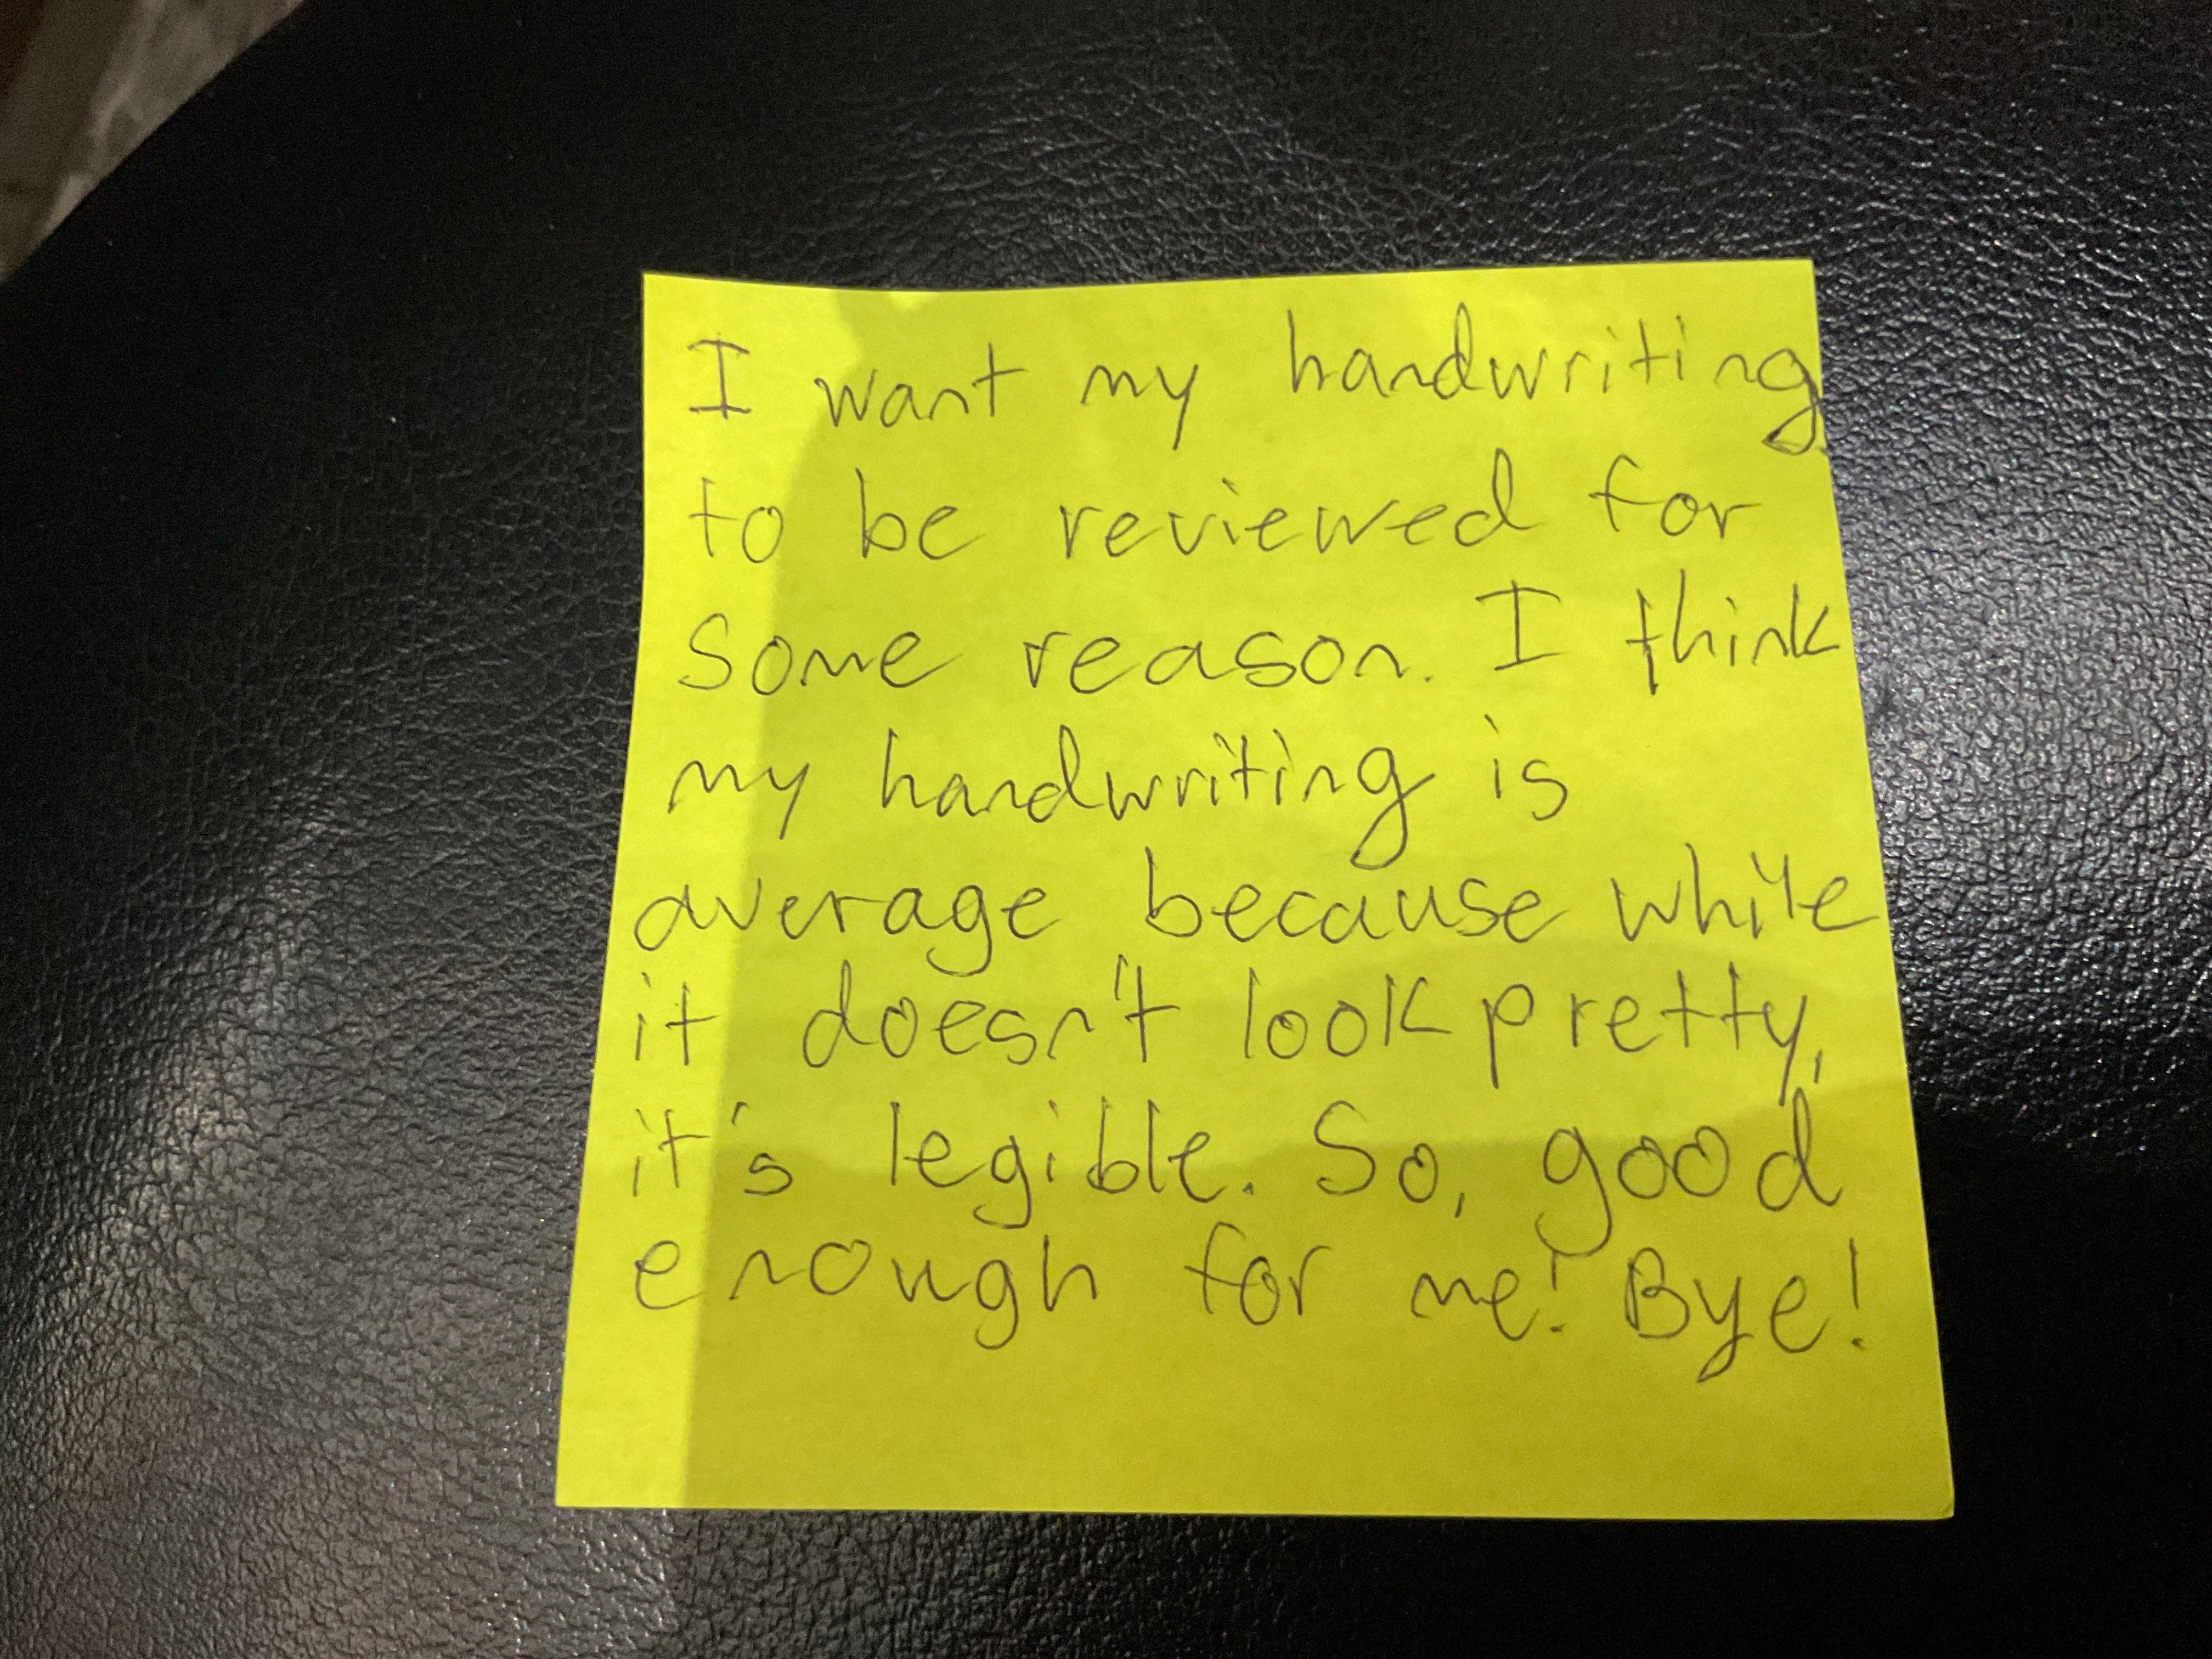 I want my handwriting
to be reviewed for
some reason. I think
my handwriting is
average because while
it doesn't look pretty,
it's legible. So, good
enough for me! Bye!